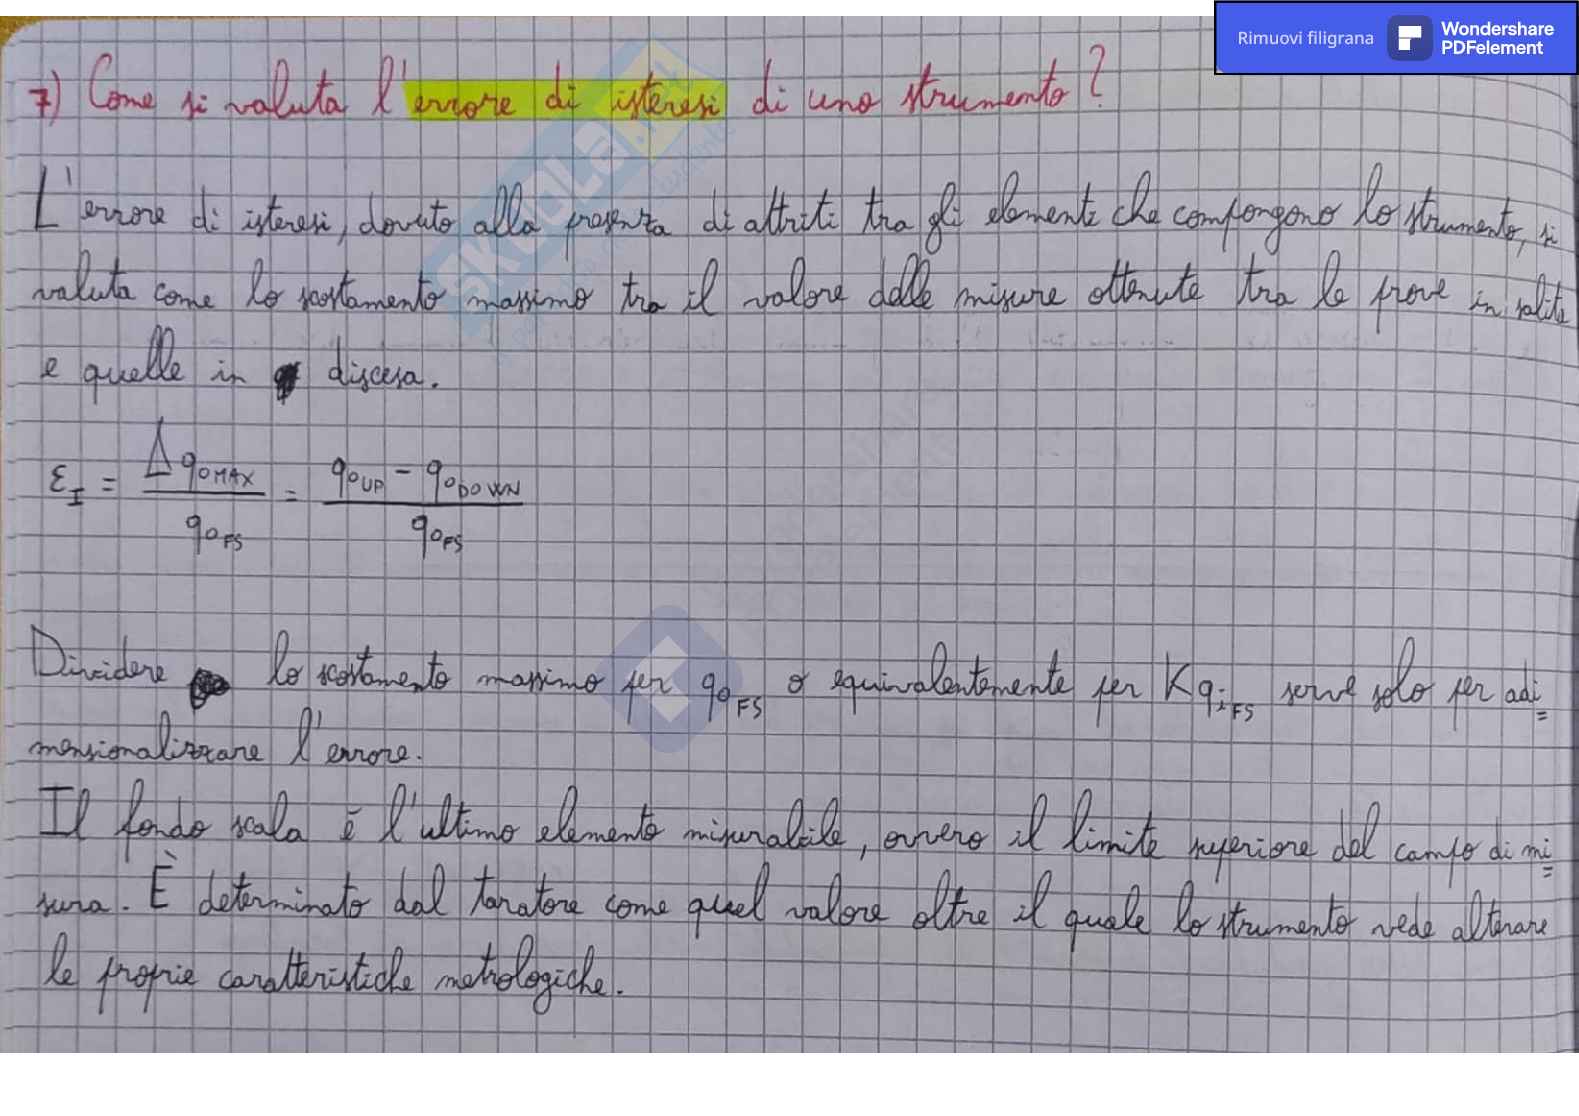 Rimuovi filigrana
Wondershare
PDFelement
7) Come si valuta l'errore di isteresi di uno strumento?
L'errore di isteresi, dovuto alla presenza di attriti tra gli elementi che compongono lo strumento, si
valuta come lo scostamento massimo tra il valore delle misure ottenute tra le prove in salita
e quelle in discesa.
ε_I = Δq_{0MAX} / q_{0FS} = (q_{0UP} - q_{0DOWN}) / q_{0FS}
Dividere lo scostamento massimo per q_{0FS} o equivalentemente per K q_{iFS} serve solo per adi=
mensionalizzare l'errore.
Il fondo scala è l'ultimo elemento misurabile, ovvero il limite superiore del campo di mi=
sura. È determinato dal taratore come quel valore oltre il quale lo strumento vede alterare
le proprie caratteristiche metrologiche.
SKUOLA.it